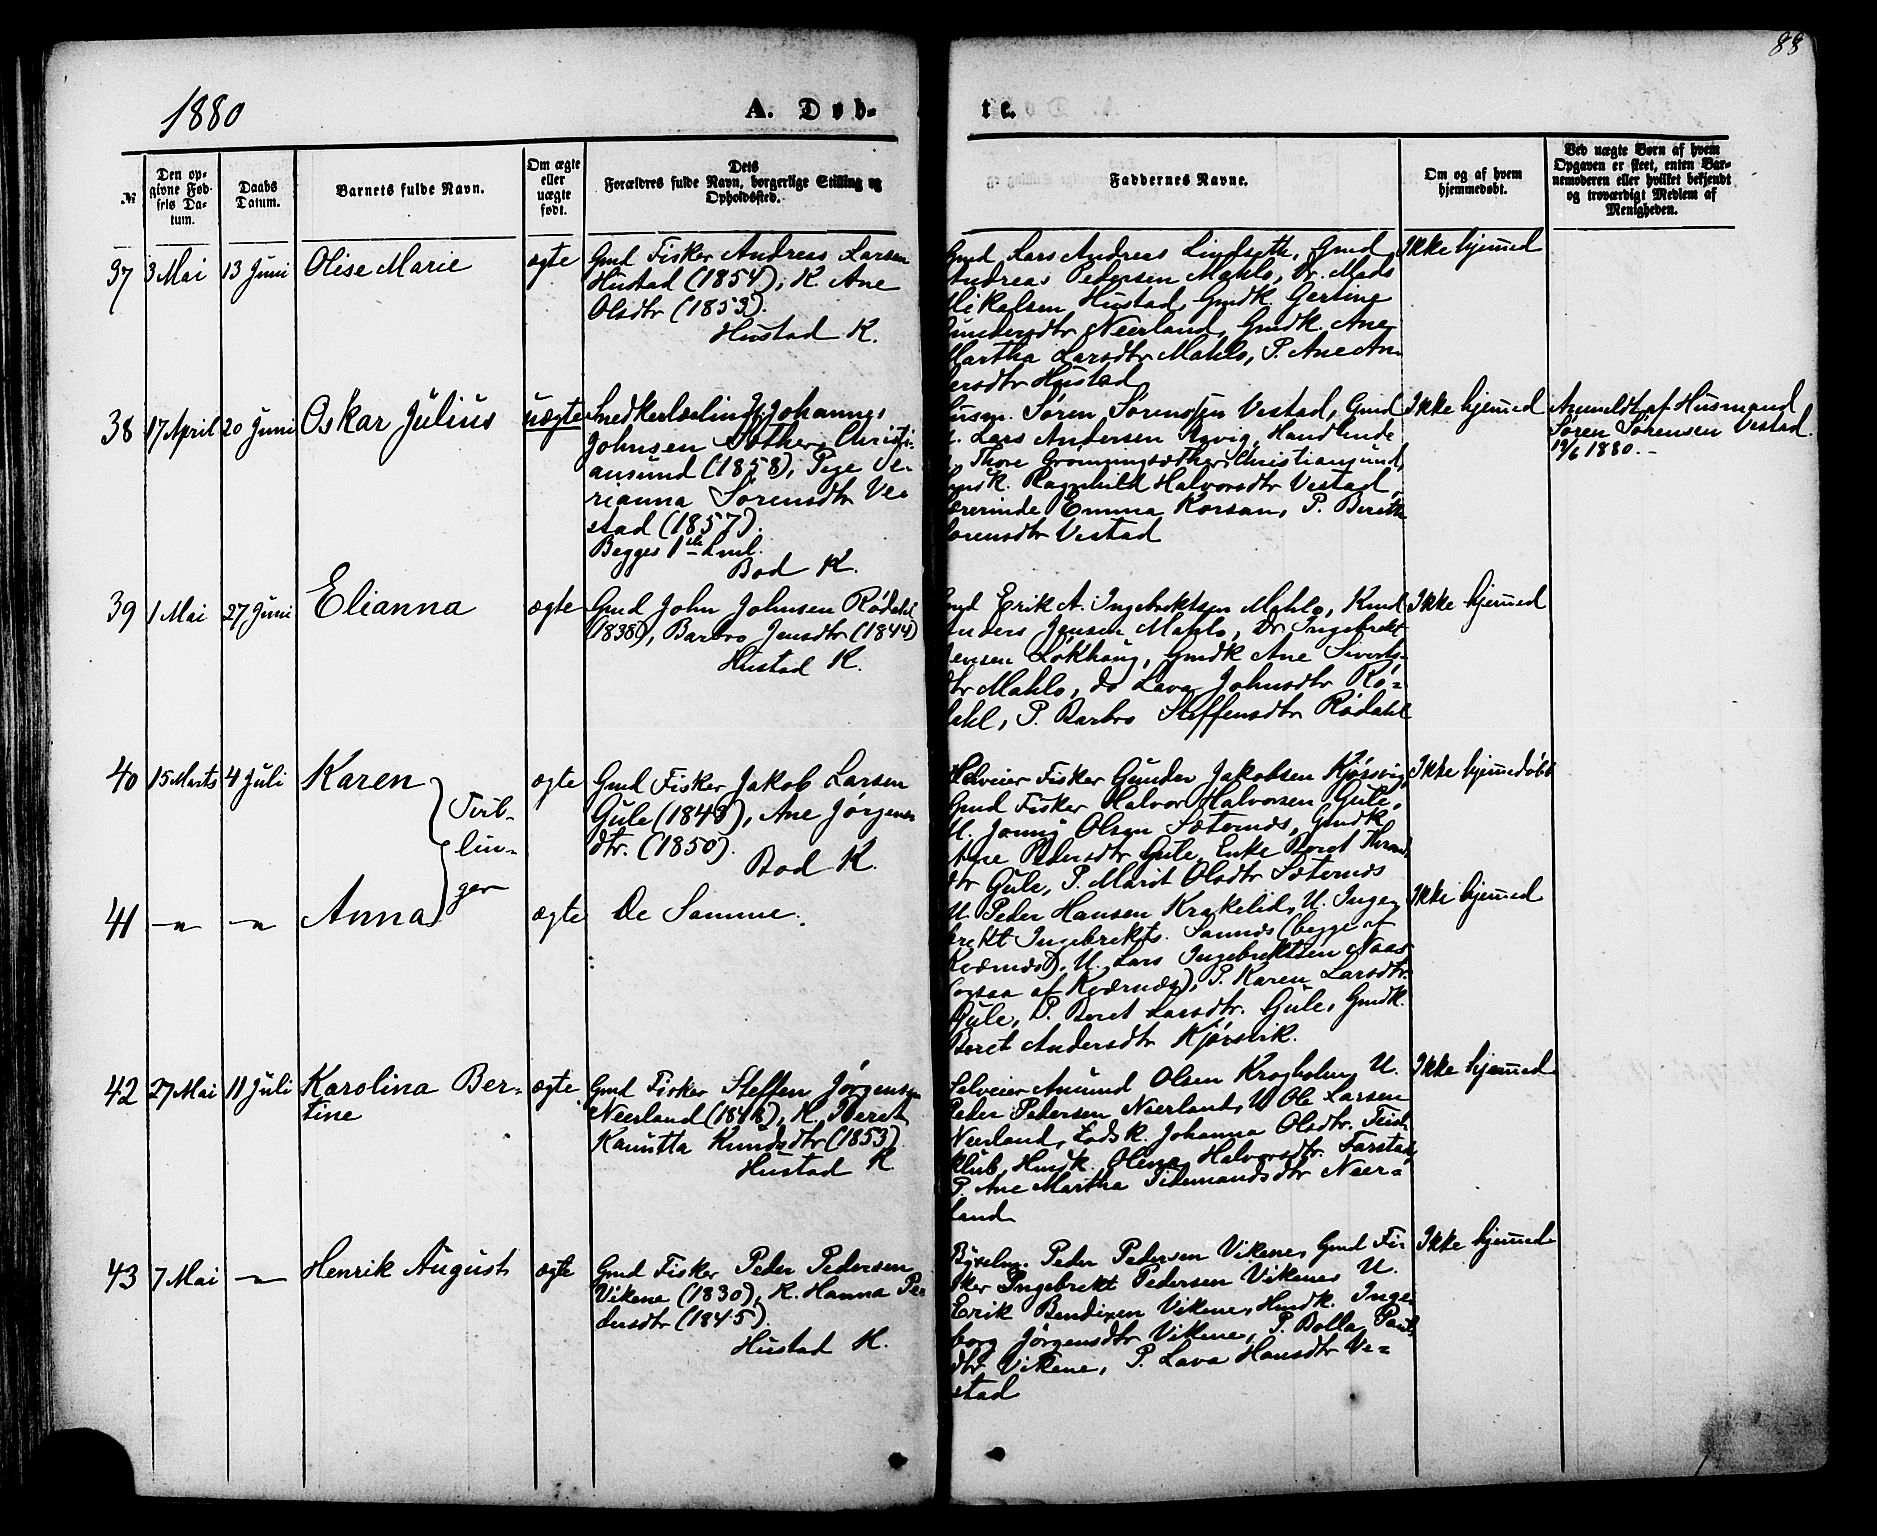 88
1880
A. Døb-
te.
№
Den op-
givne Fød-
sels Da-
tum.
Daabs
Datum.
Barnets fulde Navn.
Om ægte
eller
uægte
født.
Dets
Forældres fulde Navn, borgerlige Stilling og
Opholdssted.
Faddernes Navne.
Om og af hvem
hjemmedøbt.
Ved uægte Børn af hvem
Opgaven er skeet, enten Bar-
nemoderen eller hvilket bekjendt
og troværdigt Medlem af
Menigheden.
37
3 Mai
13 Juni
Olise Marie
ægte
Gmd Fisker Andreas Larsen
Hustad (1854), K. Ane
Olsdtr (1853).
Hustad K.
Gmd Lars Andreas Lindseth, Gmd
Andreas Pedersen Mahlo, Dr. Mads
Mikalsen Hustad, Gmdk. Gertine
Gundersdtr Neerland, Gmdk. Ane
Martha Larsdtr Mahlo, P. Ane An-
dersdtr Hustad
Ikke hjemmed
38
17 April
20 Juni
Oskar Julius
uægte
Snedkerlærling Johannes
Johnsen Christi-
ansund (1858), Pige Se-
rianna Sørensdtr Ve-
stad (1857).
Begges 1ste Leml.
Bod K.
Husm. Søren Sørensen Vestad, Gmd
Lars Andersen Rovig, Handlende
Thore Grønningsæther Christiansund,
Husk. Ragnhild Halvorsdtr Vestad,
Lærerinde Emma Korsan, P. Berith
Sørensdtr Vestad
Ikke hjemmed
Anmeldt af Husmand
Søren Sørensen Vestad.
19/6 1880.-
39
1 Mai
27 Juni
Elianna
ægte
Gmd John Johnsen Rødahl
(1838), Barbro Jensdtr (1844)
Hustad K.
Gmd Erik A. Ingebrektsen Mahlo, Kmd
Anders Jensen Mahlo, Dr. Ingebrekt
Jensen Løkhaug, Gmdk Ane Siverts-
dtr Mahlo, do Lava Johnsdtr Rø-
dahl, P. Barbro Steffensdtr Rødahl
Ikke hjemmed
40
15 Marts
4 Juli
Karen
Tvil-
lin-
ger
ægte
Gmd Fisker Jakob Larsen
Gule (1848), Ane Jørgens-
dtr. (1850).
Bod K.
Selveier Fisker Gunder Jakobsen Kjørsvig,
Gmd Fisker Halvor Halvorsen Gule,
U. Olsen Sæternes, Gmdk
Ane Pedersdtr Gule, Enke Beret
dtr Gule, P. Marit Olsdtr Sæternes
Ikke hjemmedøbt
41
-"-
-"-
Anna
ægte
De Samme.
U. Peder Hansen Krakelid, U. Inge-
brekt Ingebrekts. Sannes (begge af
Kværnes), U. Lars Ingebrektsen Naas
af Kværnes), P. Karen Larsdtr.
Gule, P. Beret Larsdtr. Gule, Gmdk.
Beret Andersdtr Kjørsvik.
Ikke hjemmed
42
27 Mai
11 Juli
Karolina Ber-
tine
ægte
Gmd Fisker Steffen Jørgensen
Neerland (1848), K. Beret
Kanutta Knudsdtr (1853)
Hustad K
Selveier Amund Olsen Kragholm, U.
Peder Pedersen Neerland, U Ole Larsen
Neerland, Lodsk. Johanna Olsdtr.
Husk. Olena Halvorsdtr. Farstad,
P. Ane Martha Tidemandsdtr Neer-
land
Ikke hjemmed
43
7 Mai
-"-
Henrik August
ægte
Gmd Fisker Peder Pedersen
Vikene (1830), K. Hanna Pe-
dersdtr (1845).
Hustad K.
Peder Pedersen Vikene, Gmd Fi-
sker Ingebrekt Pedersen Vikenes U.
Erik Bendixen Vikene, Husk. Inge-
borg Jørgensdtr Vikene, P. Bolla Pauls
dtr Vikene, P. Lava Hansdtr Ve-
stad
Ikke hjemmed